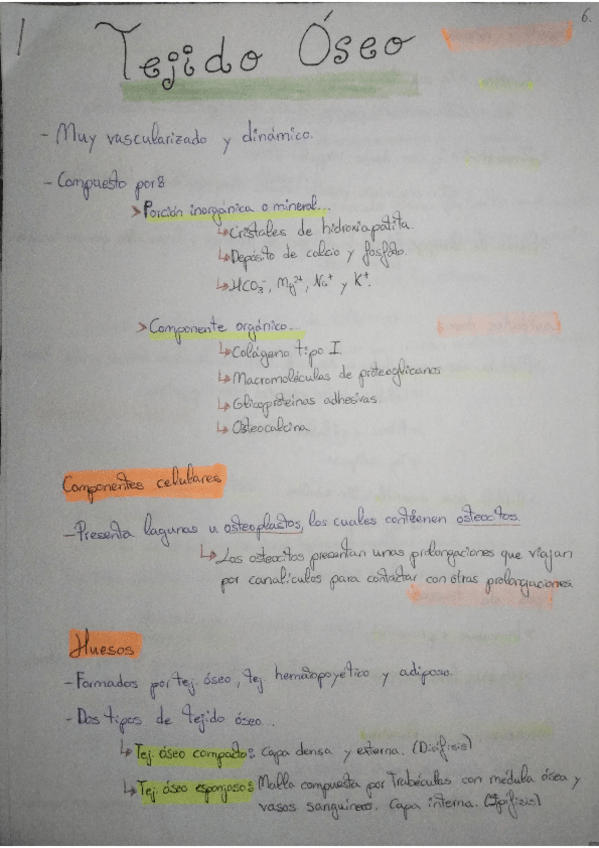 1
6.
Tejido Óseo
- Muy vascularizado y dinámico.
- Compuesto por:
> Porción inorgánica o mineral...
↳ Cristales de hidroxiapatita.
↳ Depósito de calcio y fosfato.
↳ HCO₃⁻, Mg²⁺, Na⁺ y K⁺.
> Componente orgánico...
↳ Colágeno tipo I.
↳ Macromoléculas de proteoglicanos
↳ Glicoproteínas adhesivas
↳ Osteocalcina.
Componentes celulares
- Presenta lagunas u osteoplastos, los cuales contienen osteocitos.
↳ Los osteocitos presentan unas prolongaciones que viajan
por canalículos para contactar con otras prolongaciones.
Huesos
- Formados por tej. óseo, tej. hematopoyético y adiposo.
- Dos tipos de tejido óseo...
↳ Tej. óseo compacto: Capa densa y externa. (Diáfisis)
↳ Tej. óseo esponjoso: Malla compuesta por Trabéculas con médula ósea y
vasos sanguíneos. Capa interna. (Epífisis)